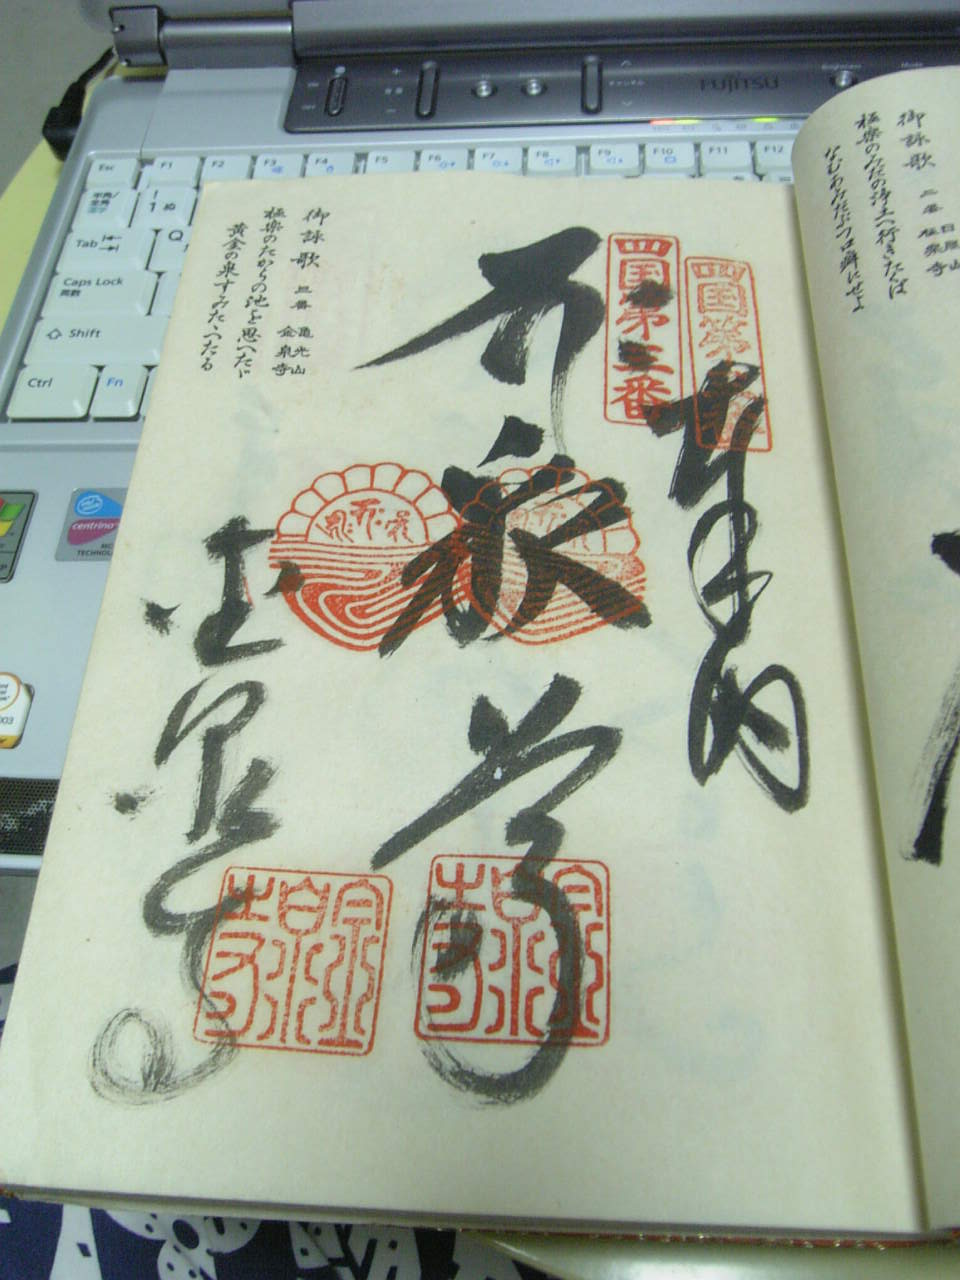 FUJITSU
Esc
F1
F2
F3
F4
F5
F6
F7
F8
F9
F10
F11
F12
半角/
全角
漢字
! 1 ぬ
Q
Tab
Caps Lock
英数
Shift
Ctrl
Fn
centrino
御詠歌 二番 日照山
極楽寺
極楽のみだの浄土へ行きたくば
なむあみだぶつ口癖にせよ
四国第三番
四国第三番
奉納
釈迦堂
金泉寺
御詠歌 三番 亀光山
金泉寺
極楽のたからの池を思へたゞ
黄金の泉すみたゝへたる
金泉寺
金泉寺